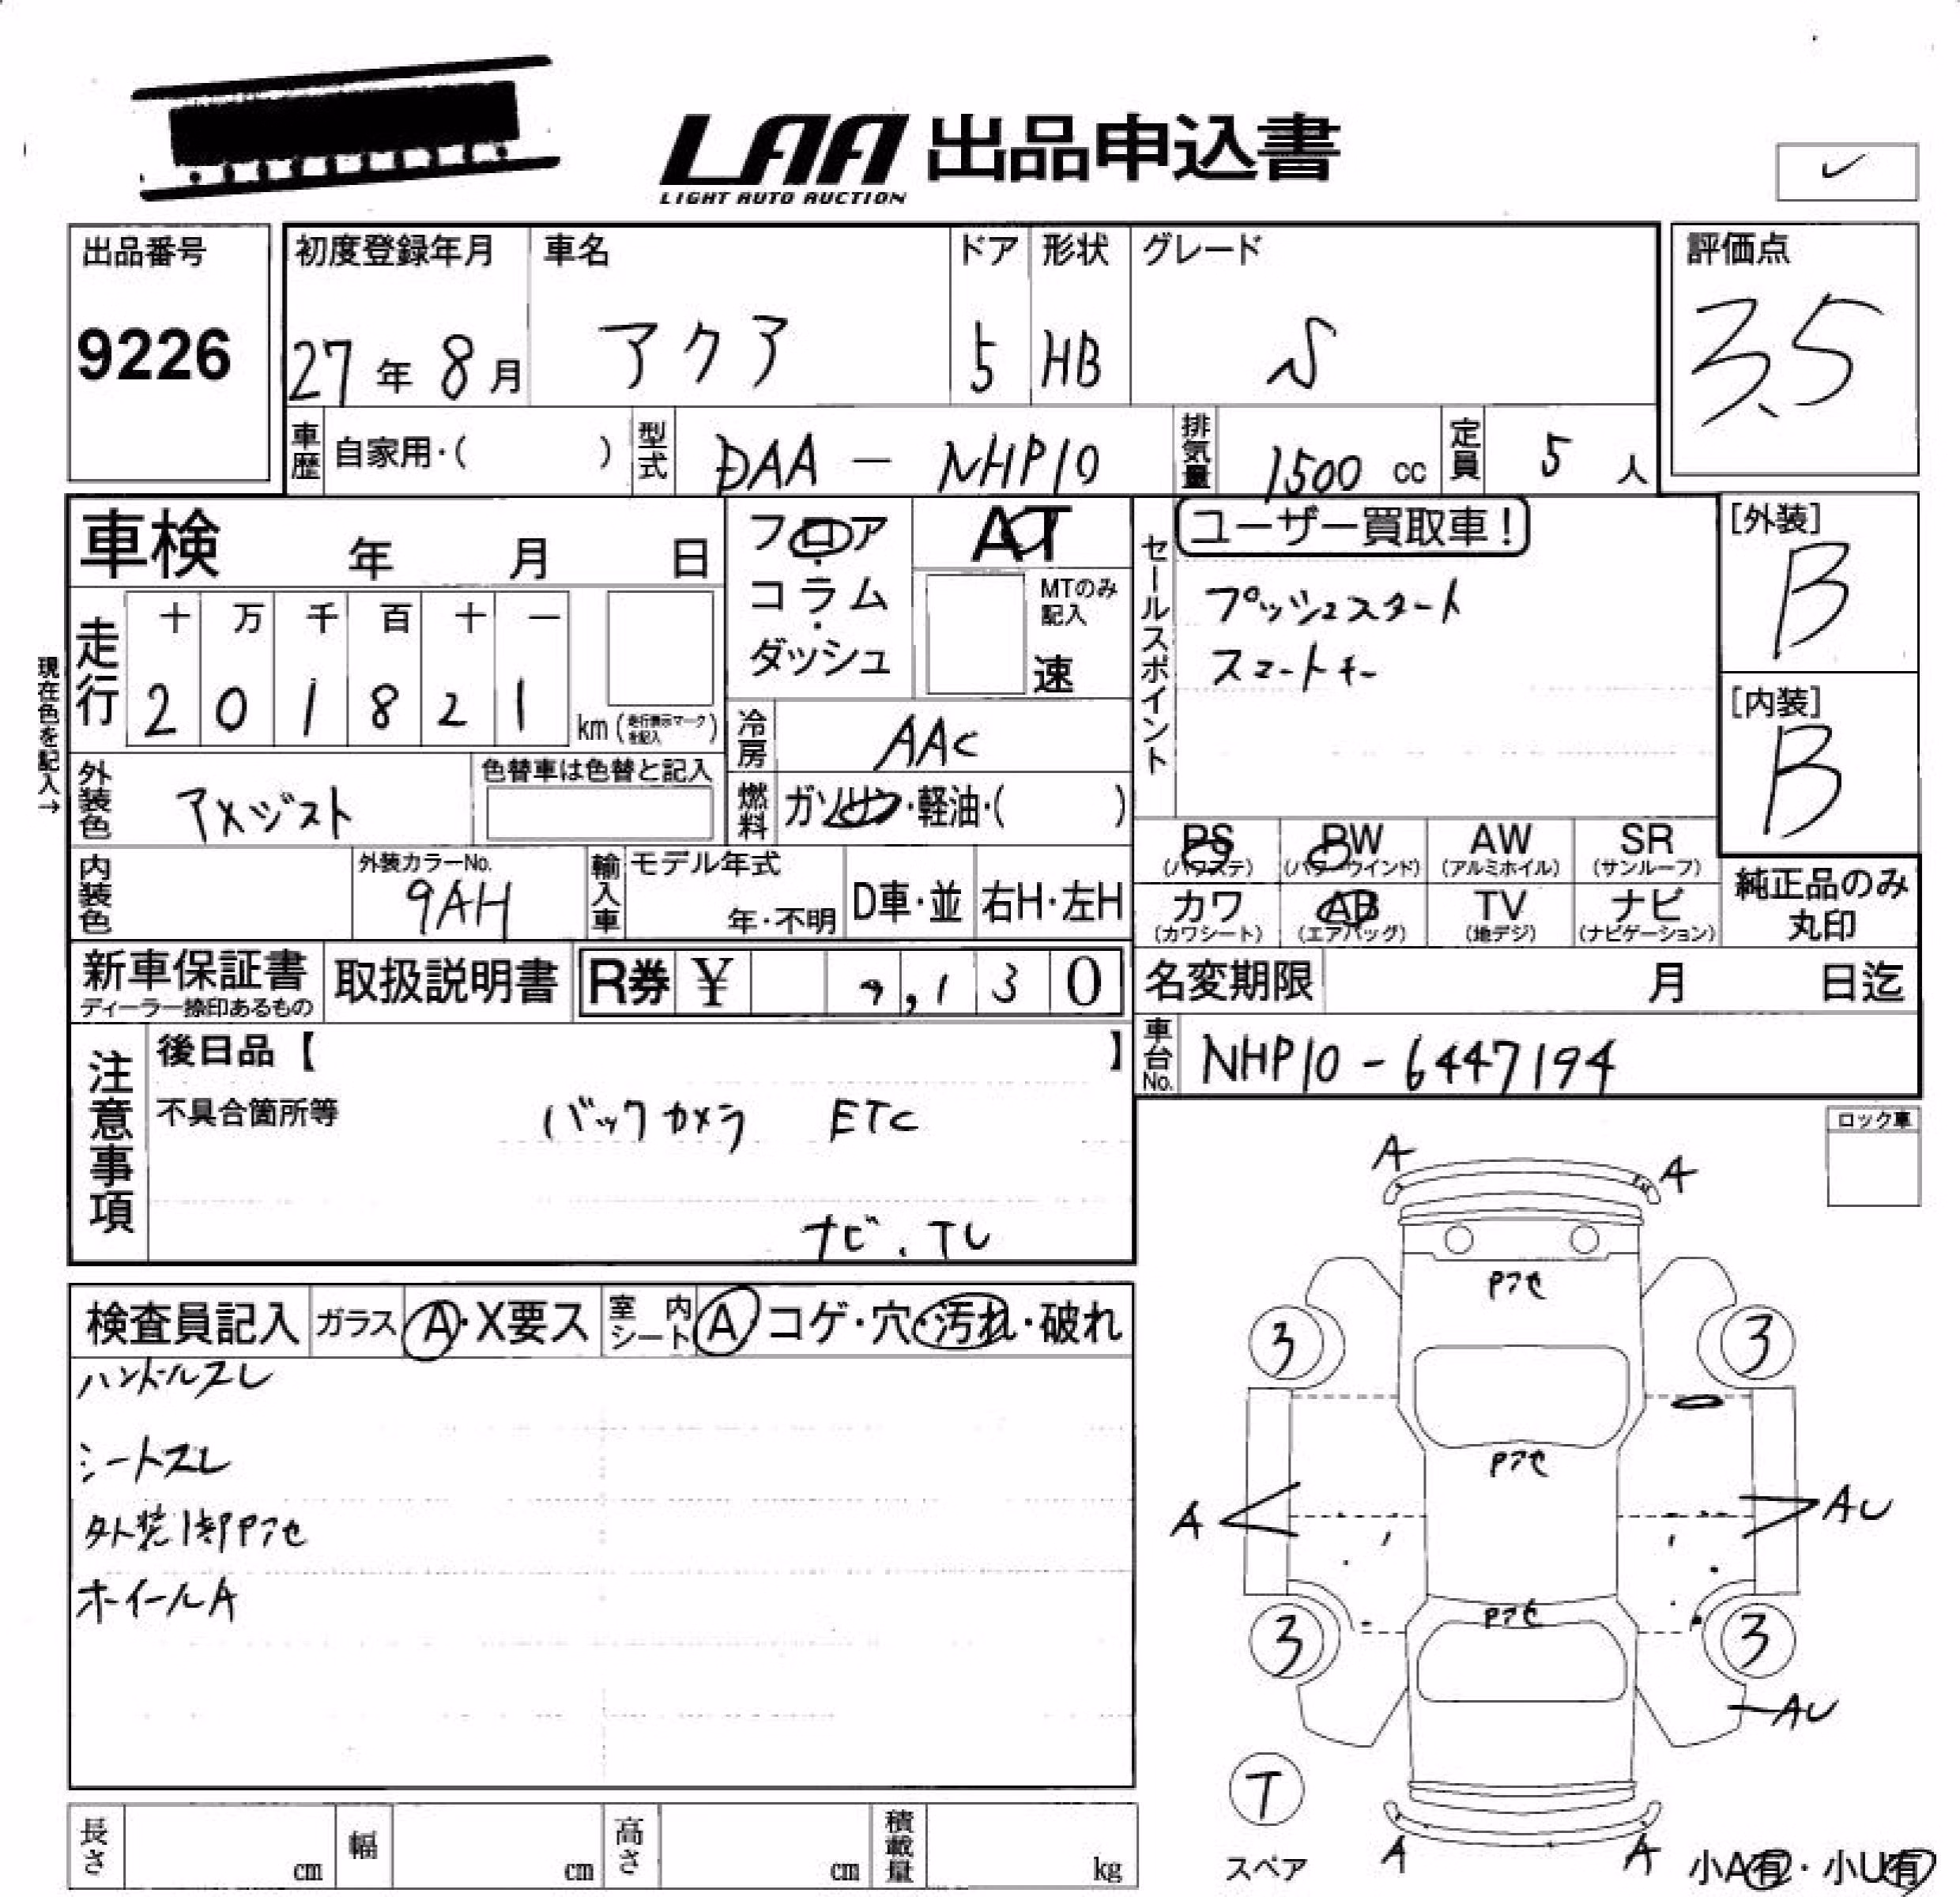 LAA 出品申込書
LIGHT AUTO AUCTION
出品番号
9226
初度登録年月
27年 8月
車名
アクア
ドア
5
形状
HB
グレード
S
評価点
3.5
車歴 自家用・( )
型式 DAA - NHP10
排気量 1500 cc
定員 5 人
車検 年 月 日
フロア・コラム・ダッシュ
AT
MTのみ記入
速
セールスポイント
ユーザー買取車!
プッシュスタート
スマートキー
[外装]
B
[内装]
B
現在色を記入→
走行
十 万 千 百 十 一
2 0 1 8 2 1
km (走行表示マークを記入)
冷房 AAC
燃料 ガソリン・軽油・( )
外装色 アメジスト
色替車は色替と記入
内装色
外装カラーNo.
9AH
輸入車 モデル年式
年・不明
D車・並
右H・左H
PS
(パワステ)
PW
(パワーウインド)
AW
(アルミホイル)
SR
(サンルーフ)
カワ
(カワシート)
AB
(エアバッグ)
TV
(地デジ)
ナビ
(ナビゲーション)
純正品のみ
丸印
新車保証書
ディーラー捺印あるもの
取扱説明書
R券 ¥ 9,130
名変期限 月 日迄
車台No. NHP10-6447194
注意事項
後日品【 】
不具合箇所等
バックカメラ ETC
ナビ.TV
ロック車
検査員記入
ガラス A・X要ス
室内シート A コゲ・穴・汚れ・破れ
ハンドルスレ
シートスレ
外装1部Pアセ
ホイールA
A
A
Pアセ
3
3
Pアセ
A
AU
Pアセ
3
3
AU
T
スペア
A
A
小A有・小U有
長さ cm
幅 cm
高さ cm
積載量 kg